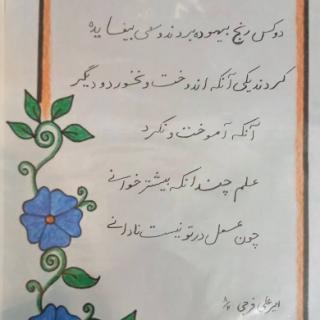 دو کس رنج بیهوده بردند و سعی بیفایده
کردند یکی آنکه اندوخت و نخورد و دیگر
آنکه آموخت و نکرد
علم چندانکه بیشتر خوانی
چون عمل در تو نیست نادانی
امیرعلی فرجی